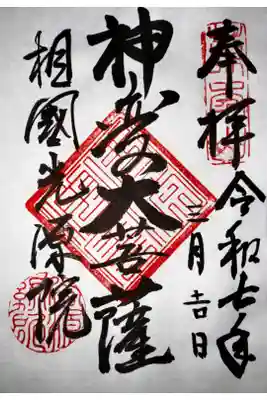 奉拝
令和七年
三月吉日
神変大菩薩
相國光源院